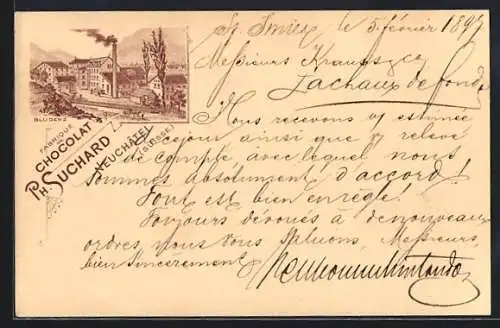 BLUDENZ
FABRIQUE
CHOCOLAT
PH. SUCHARD
NEUCHÂTEL
(SUISSE)
St. Imier, le 5 février 1897
Messieurs Krauss & Cie
Lachaux de fonds
Nous recevons v/ estimée
de ce jour ainsi que v/ relevé
de compte, avec lequel nous
sommes absolument d'accord!
Tout est bien en règle!
Toujours dévoués à de nouveaux
ordres, nous vous saluons, Messieurs,
bien sincèrement